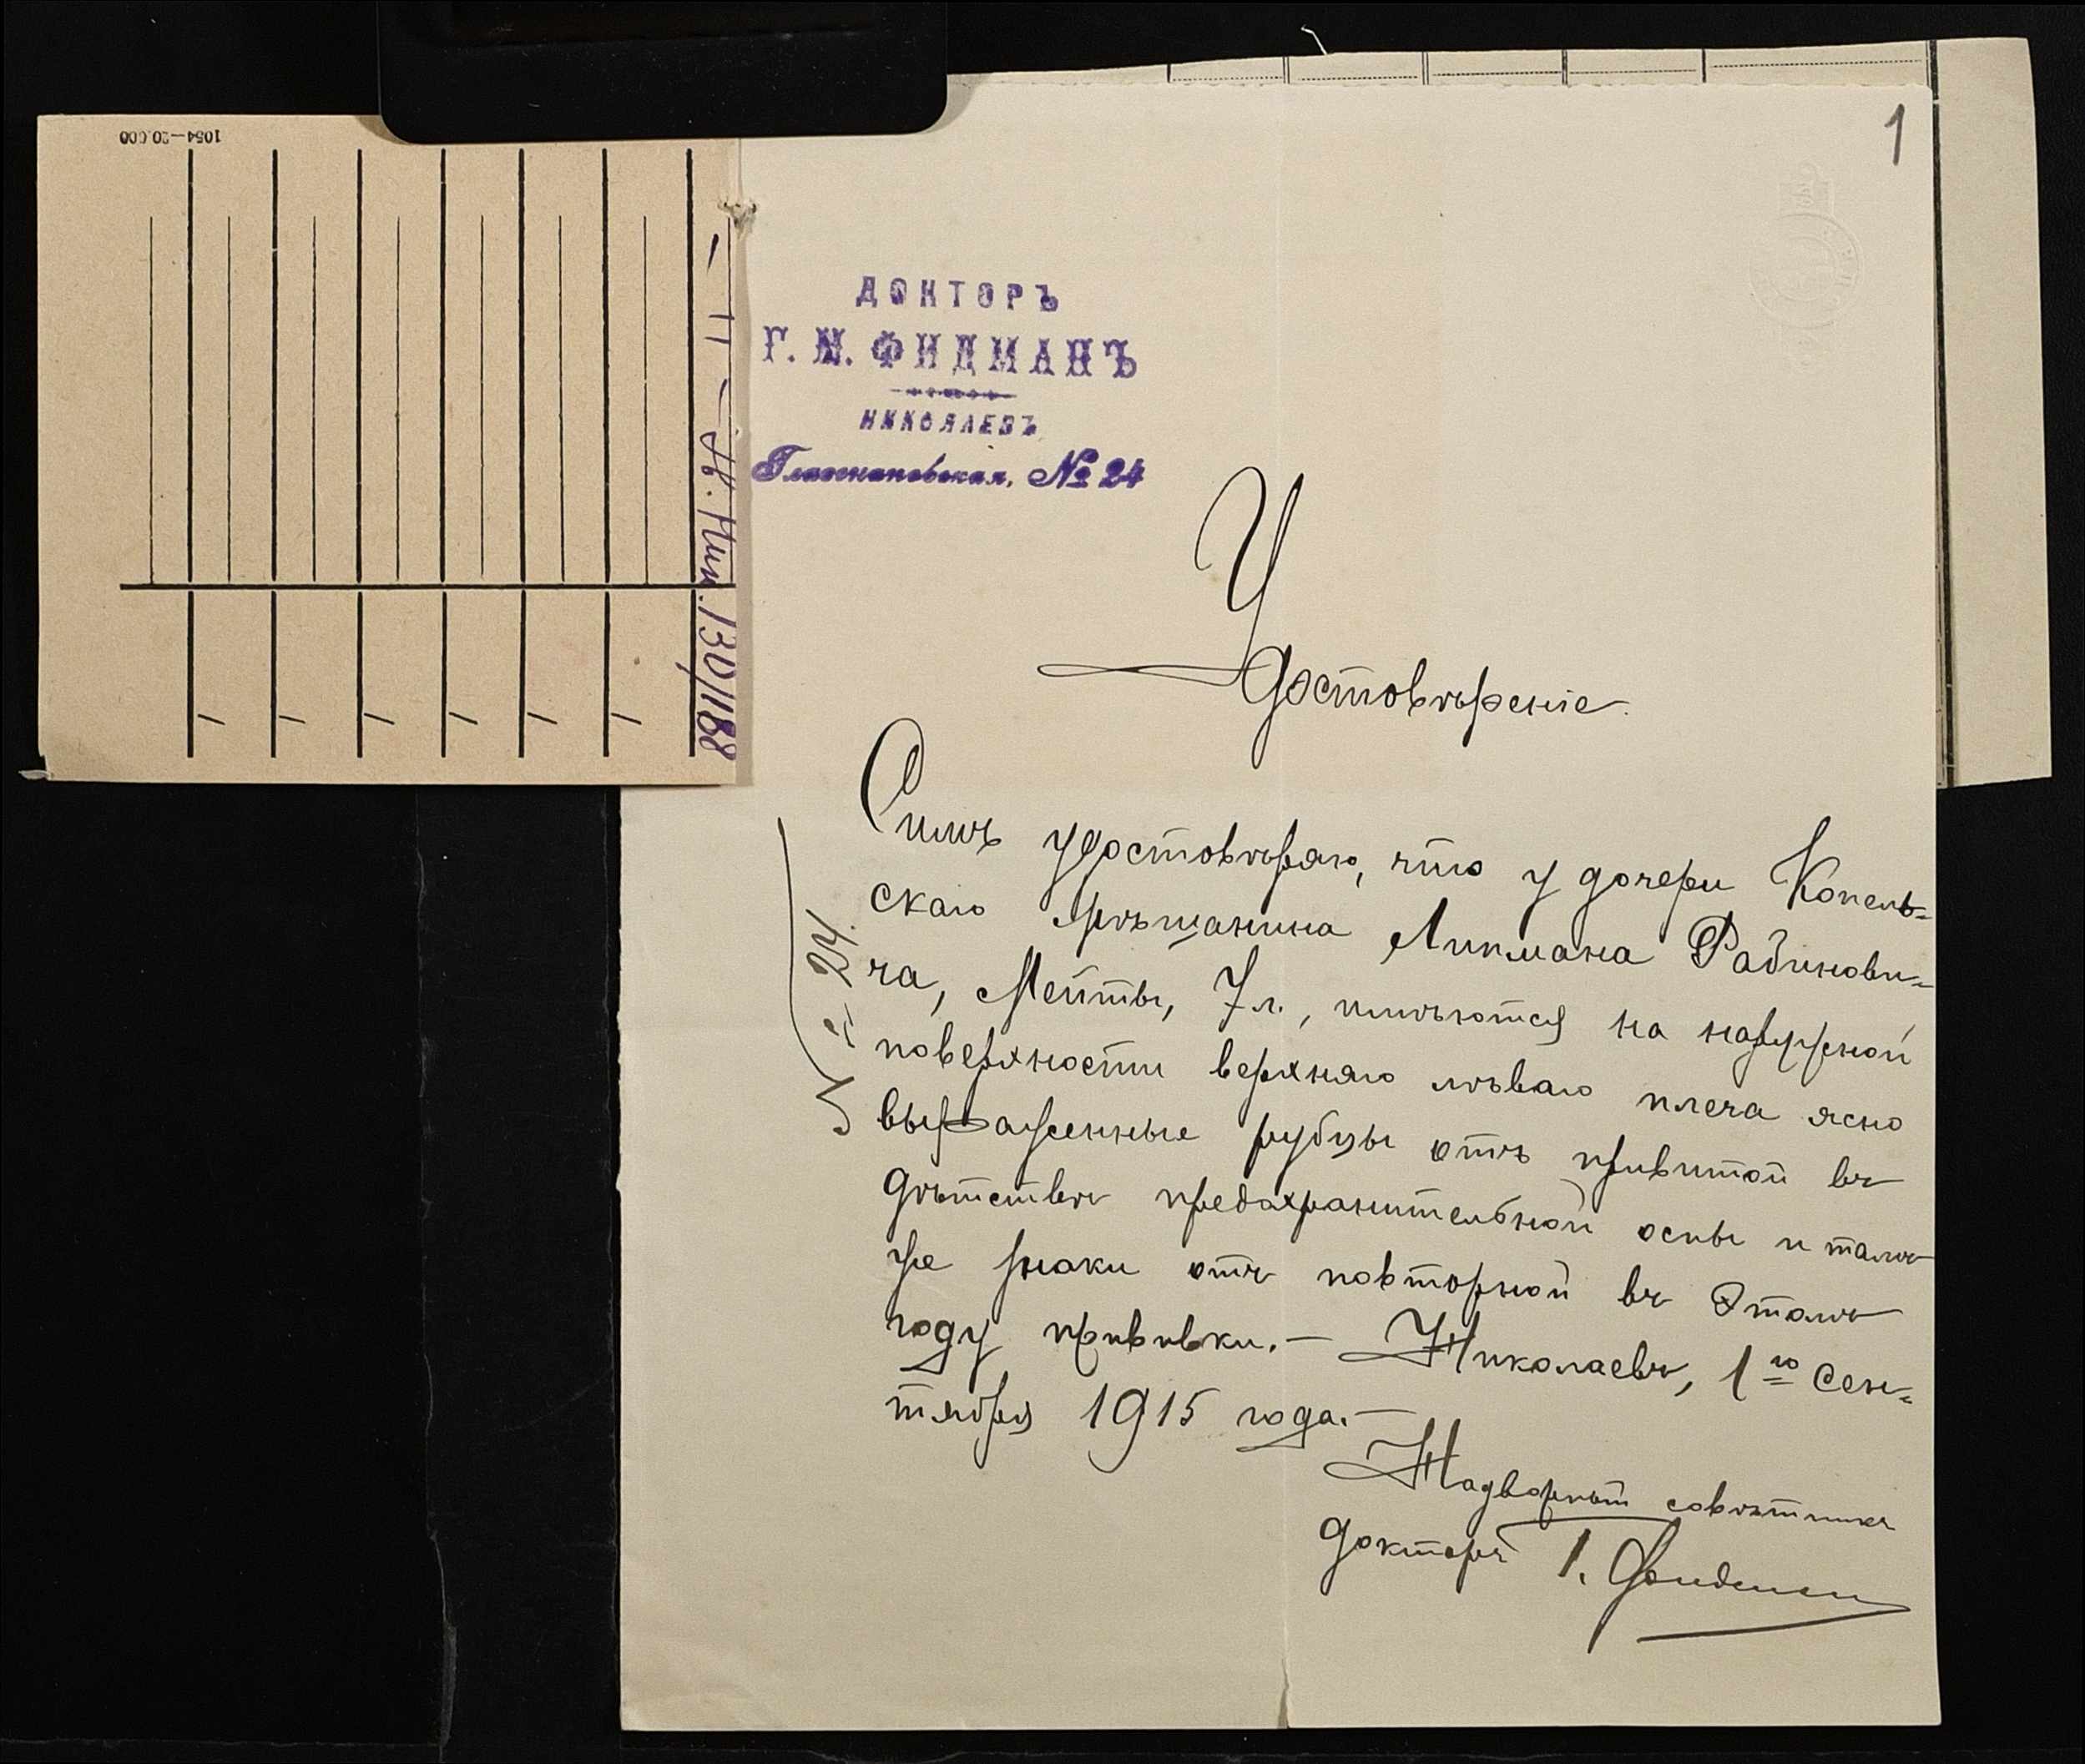 1
1054—20.000
ДОКТОРЪ
Г. М. ФИДМАНЪ
НИКОЛАЕВЪ
Глазенаповская, № 24
Удостовѣреніе.
Симъ удостовѣряю, что у дочери Копель=
скаго мѣщанина Липмана Рабинови=
ча, Мейты, 7 л., имѣются на наружной
поверхности верхняго лѣваго плеча ясно
выраженные рубцы отъ привитой въ
дѣтствѣ предохранительной оспы и такія
же знаки отъ повторной въ этомъ
году прививки.— Николаевъ, 1го Сен=
тября 1915 года.—
Надворный совѣтникъ
докторъ Г. Фидман
24.
130/1188